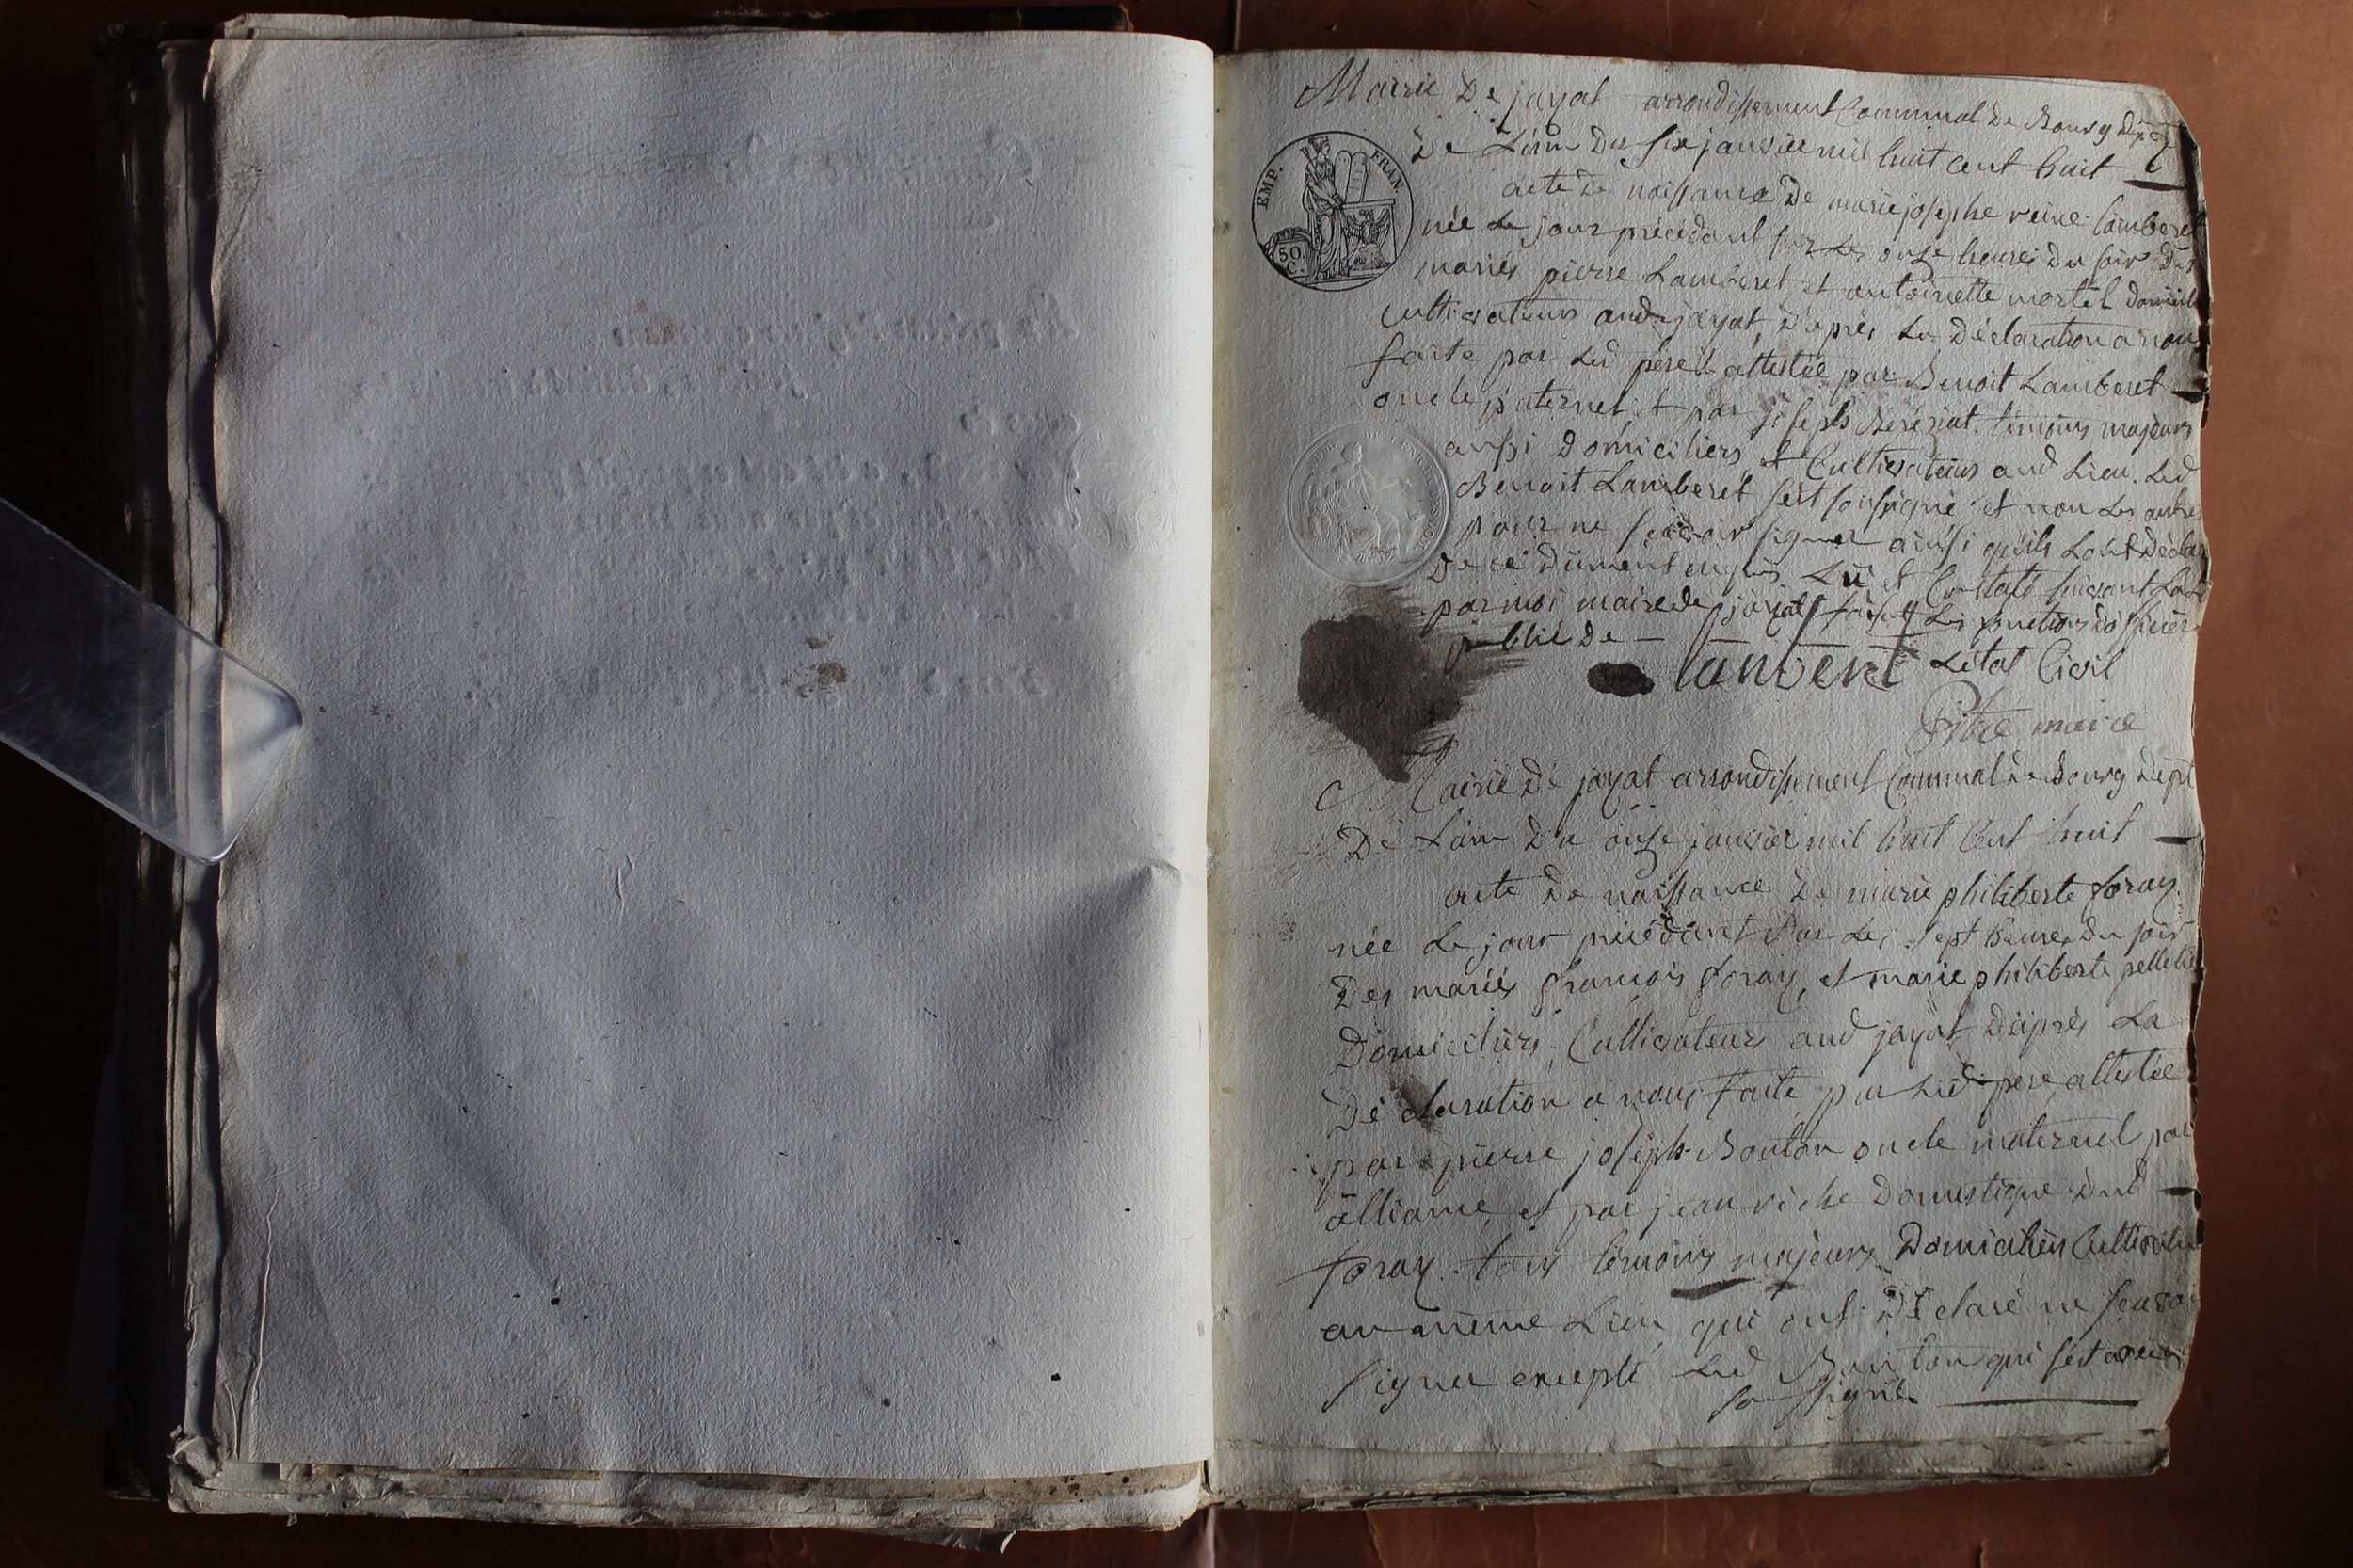 Mairie De jayat arrondissement Communal De Bourg Dept
De L'ain Du six janvier mil huit cent huit
acte de naissance De marie josephe reine Lamberet
née Le jour précédant sur Les onze heures Du soir Des
mariés pierre Lamberet et antoinette mortel domicilie
Cultivateurs aud. jayat, D'après La Déclaration a nous
faite par Led père et attestée par Benoit Lamberet
oncle paternel, et par joseph témoins majeurs
aussi Domiciliers et Cultivateurs aud Lieu. Led
Benoit Lamberet s'est soussigné et non Les autres
pour ne sçavoir signer ainsi qu'ils L'ont Déclar
De ce Dûment enquis. Lu et Constaté suivant La Loi
par moi maire de jayat faisant Les fonctions d'officier
public De
EMP. FRAN.
50. C.
lanberet L'état Civil
maire
Mairie De jayat arrondissement Communal De Bourg Dept
De L'ain Du onze janvier mil huit Cent huit
acte De naissance De marie philiberte foray
née Le jour précédant Sur Les sept heures Du soir
Des mariés françois foray, et marie philiberte pelletie
Domiciliers, Cultivateurs aud jayat D'après La
Déclaration a nous faite par Led père, attestée
par pierre joseph Bouton oncle maternel par
alliance, et par jean riche Domestique Dud
foray. tous témoins majeurs Domiciliers Cultivate
au même Lieu qui ont Déclaré ne sçavo
signer excepté Led Bouton qui s'est
soussigné